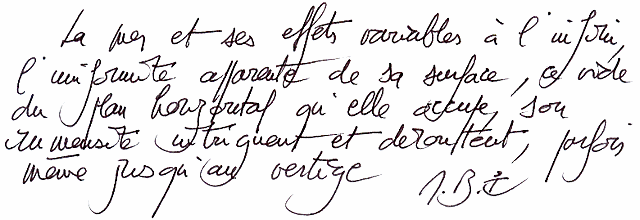 La mer et ses effets variables à l'infini,
l'uniformité apparente de sa surface, ce vide
du plan horizontal qu'elle occupe, son
immensité intriguent et déroutent, parfois
même jusqu'au vertige J.B.